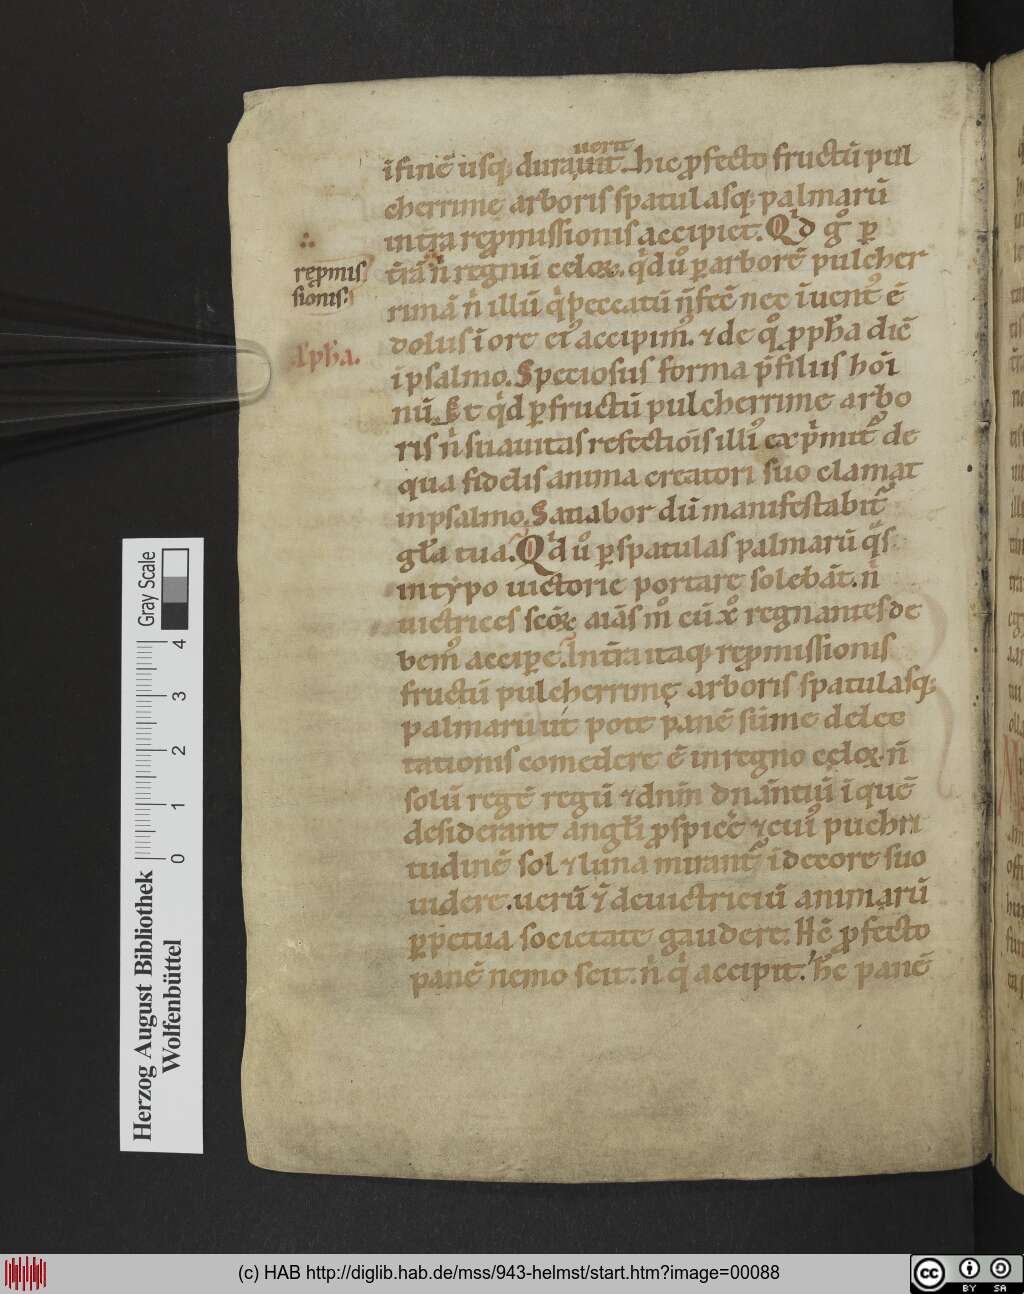 uerit
ı̄ finē usq; durauit hic ꝓfecto fructū pul
cherrimę arboris spatulasq; palmarū
in tr̄a rep̱missionis accipiet. Qͩ g̊ ꝑ
∴
rep̱mis
sionis:
tr̄ā ñ regnū celoꝝ. qͥd ů ꝑ arborē pulcher
rimā ñ illū qͥ peccatū ñ fec̄ nec ı̄uent᷒ ē
dolus ı̄ ore ei᷒ accipim᷒. ⁊ de qͦ ꝓph̄a dic̄
ı̄ ph̄a.
ı̄ psalmo. Speciosus forma p̄ filiis hoı̄
nū. Et qͥd ꝑ fructū pulcherrime arbo
ris ñ suauitas refectiōıs illi᷒ exp̄mit᷒ de
qua fidelis anima creatori suo clamat
in psalmo. Satiabor dū manifestabit᷒
gl̄a tua. Qͩ ů ꝑ spatulas palmarū qͦs
in tẏpo uictorie portare solebāt. ñ
uictrices sc̄oꝝ aı̄as m̊ cū xp̊ regnantes de
bem᷒ acciꝑe. In tr̄a itaq; rep̱missionis
fructū pulcherrimę arboris spatulasq;
palmarū ut pote panē sūme delec
tationis comedere ē in regno celoꝝ. ñ
solū regē regū ⁊ dnm̄ dn̄antiū ı̄ quē
desiderant angl̄i ꝓspicēe ⁊ cui᷒ puchri
tudinē sol ⁊ luna mirant᷒ ı̄ decore suo
uidere. uerū ⁊ de uictriciū animarū
ꝑpetua societate gaudere. Hc̄ ꝓfecto
panē nemo scit. ñ qͥ accipit. Hc̄ panē
Herzog August Bibliothek
Wolfenbüttel
0 1 2 3 4
Gray Scale
(c) HAB http://diglib.hab.de/mss/943-helmst/start.htm?image=00088
cc BY SA